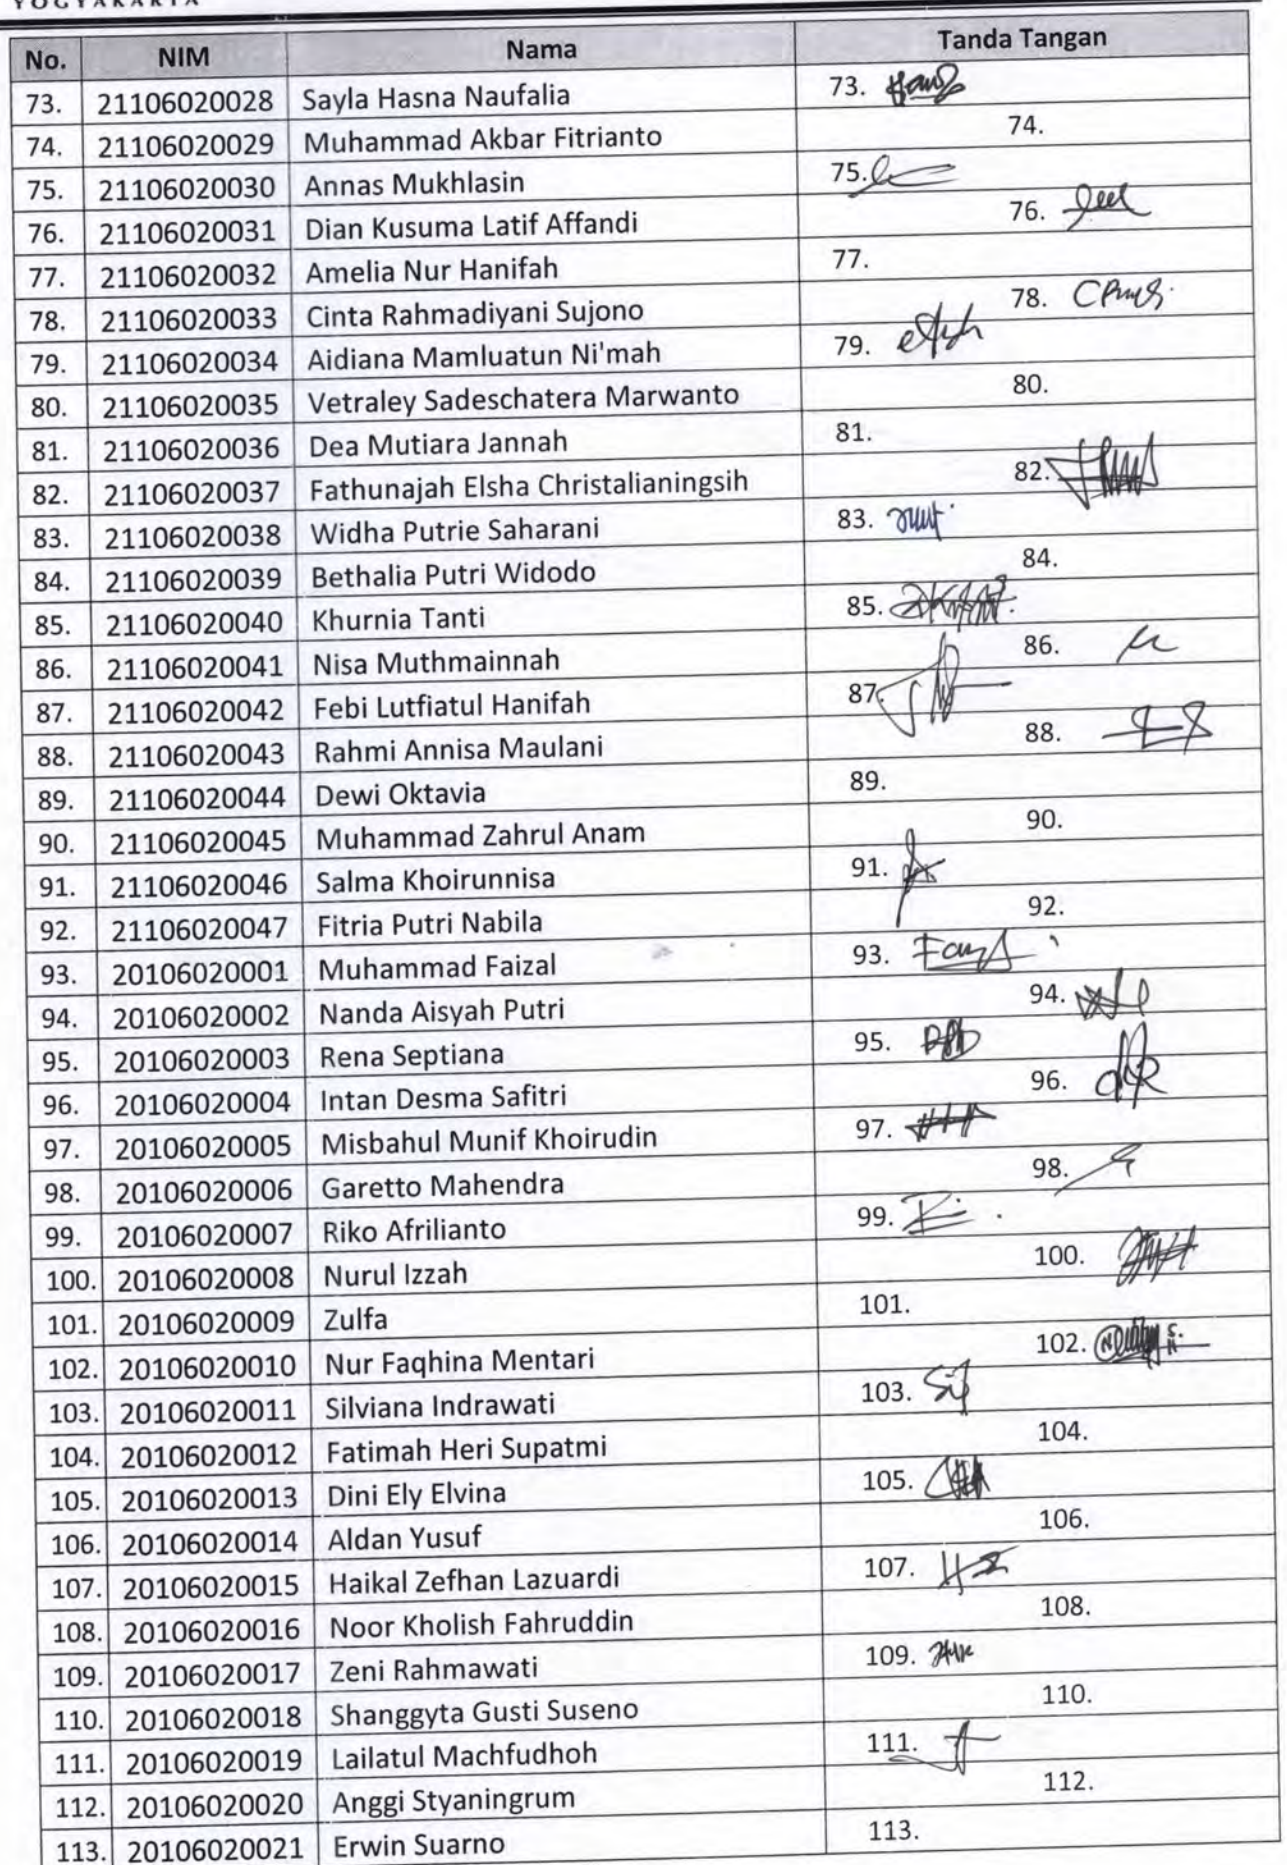 YOGYAKARTA
No. NIM Nama Tanda Tangan
73. 21106020028 Sayla Hasna Naufalia 73.
74. 21106020029 Muhammad Akbar Fitrianto 74.
75. 21106020030 Annas Mukhlasin 75.
76. 21106020031 Dian Kusuma Latif Affandi 76.
77. 21106020032 Amelia Nur Hanifah 77.
78. 21106020033 Cinta Rahmadiyani Sujono 78.
79. 21106020034 Aidiana Mamluatun Ni'mah 79.
80. 21106020035 Vetraley Sadeschatera Marwanto 80.
81. 21106020036 Dea Mutiara Jannah 81.
82. 21106020037 Fathunajah Elsha Christalianingsih 82.
83. 21106020038 Widha Putrie Saharani 83.
84. 21106020039 Bethalia Putri Widodo 84.
85. 21106020040 Khurnia Tanti 85.
86. 21106020041 Nisa Muthmainnah 86.
87. 21106020042 Febi Lutfiatul Hanifah 87
88. 21106020043 Rahmi Annisa Maulani 88.
89. 21106020044 Dewi Oktavia 89.
90. 21106020045 Muhammad Zahrul Anam 90.
91. 21106020046 Salma Khoirunnisa 91.
92. 21106020047 Fitria Putri Nabila 92.
93. 20106020001 Muhammad Faizal 93.
94. 20106020002 Nanda Aisyah Putri 94.
95. 20106020003 Rena Septiana 95.
96. 20106020004 Intan Desma Safitri 96.
97. 20106020005 Misbahul Munif Khoirudin 97.
98. 20106020006 Garetto Mahendra 98.
99. 20106020007 Riko Afrilianto 99.
100. 20106020008 Nurul Izzah 100.
101. 20106020009 Zulfa 101.
102. 20106020010 Nur Faqhina Mentari 102.
103. 20106020011 Silviana Indrawati 103.
104. 20106020012 Fatimah Heri Supatmi 104.
105. 20106020013 Dini Ely Elvina 105.
106. 20106020014 Aldan Yusuf 106.
107. 20106020015 Haikal Zefhan Lazuardi 107.
108. 20106020016 Noor Kholish Fahruddin 108.
109. 20106020017 Zeni Rahmawati 109.
110. 20106020018 Shanggyta Gusti Suseno 110.
111. 20106020019 Lailatul Machfudhoh 111.
112. 20106020020 Anggi Styaningrum 112.
113. 20106020021 Erwin Suarno 113.